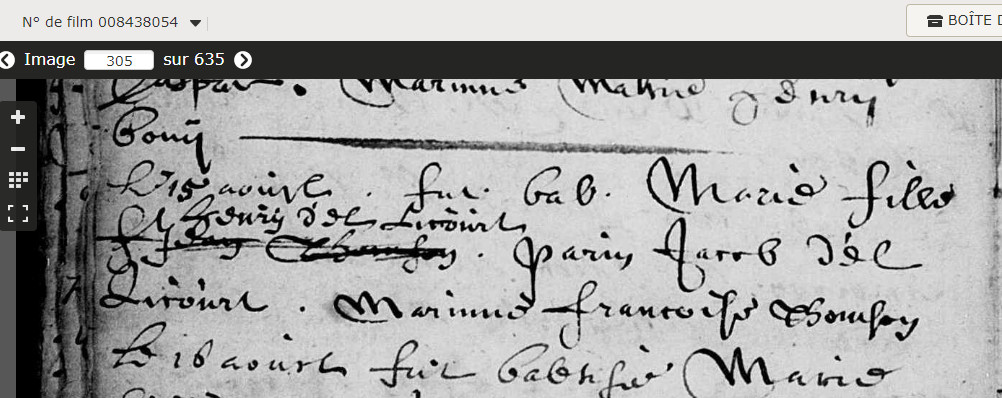 N° de film 008438054
BOÎTE D
Image 305 sur 635
Marinne Henry
bouÿ
Le 15 aoust . fut bab. Marie fille
Henry del Licourt
d Jean Thomson . Parin Jacob Del
Licourt . Marinne francoise Thomson
Le 16 aoust fut babtisée Marie